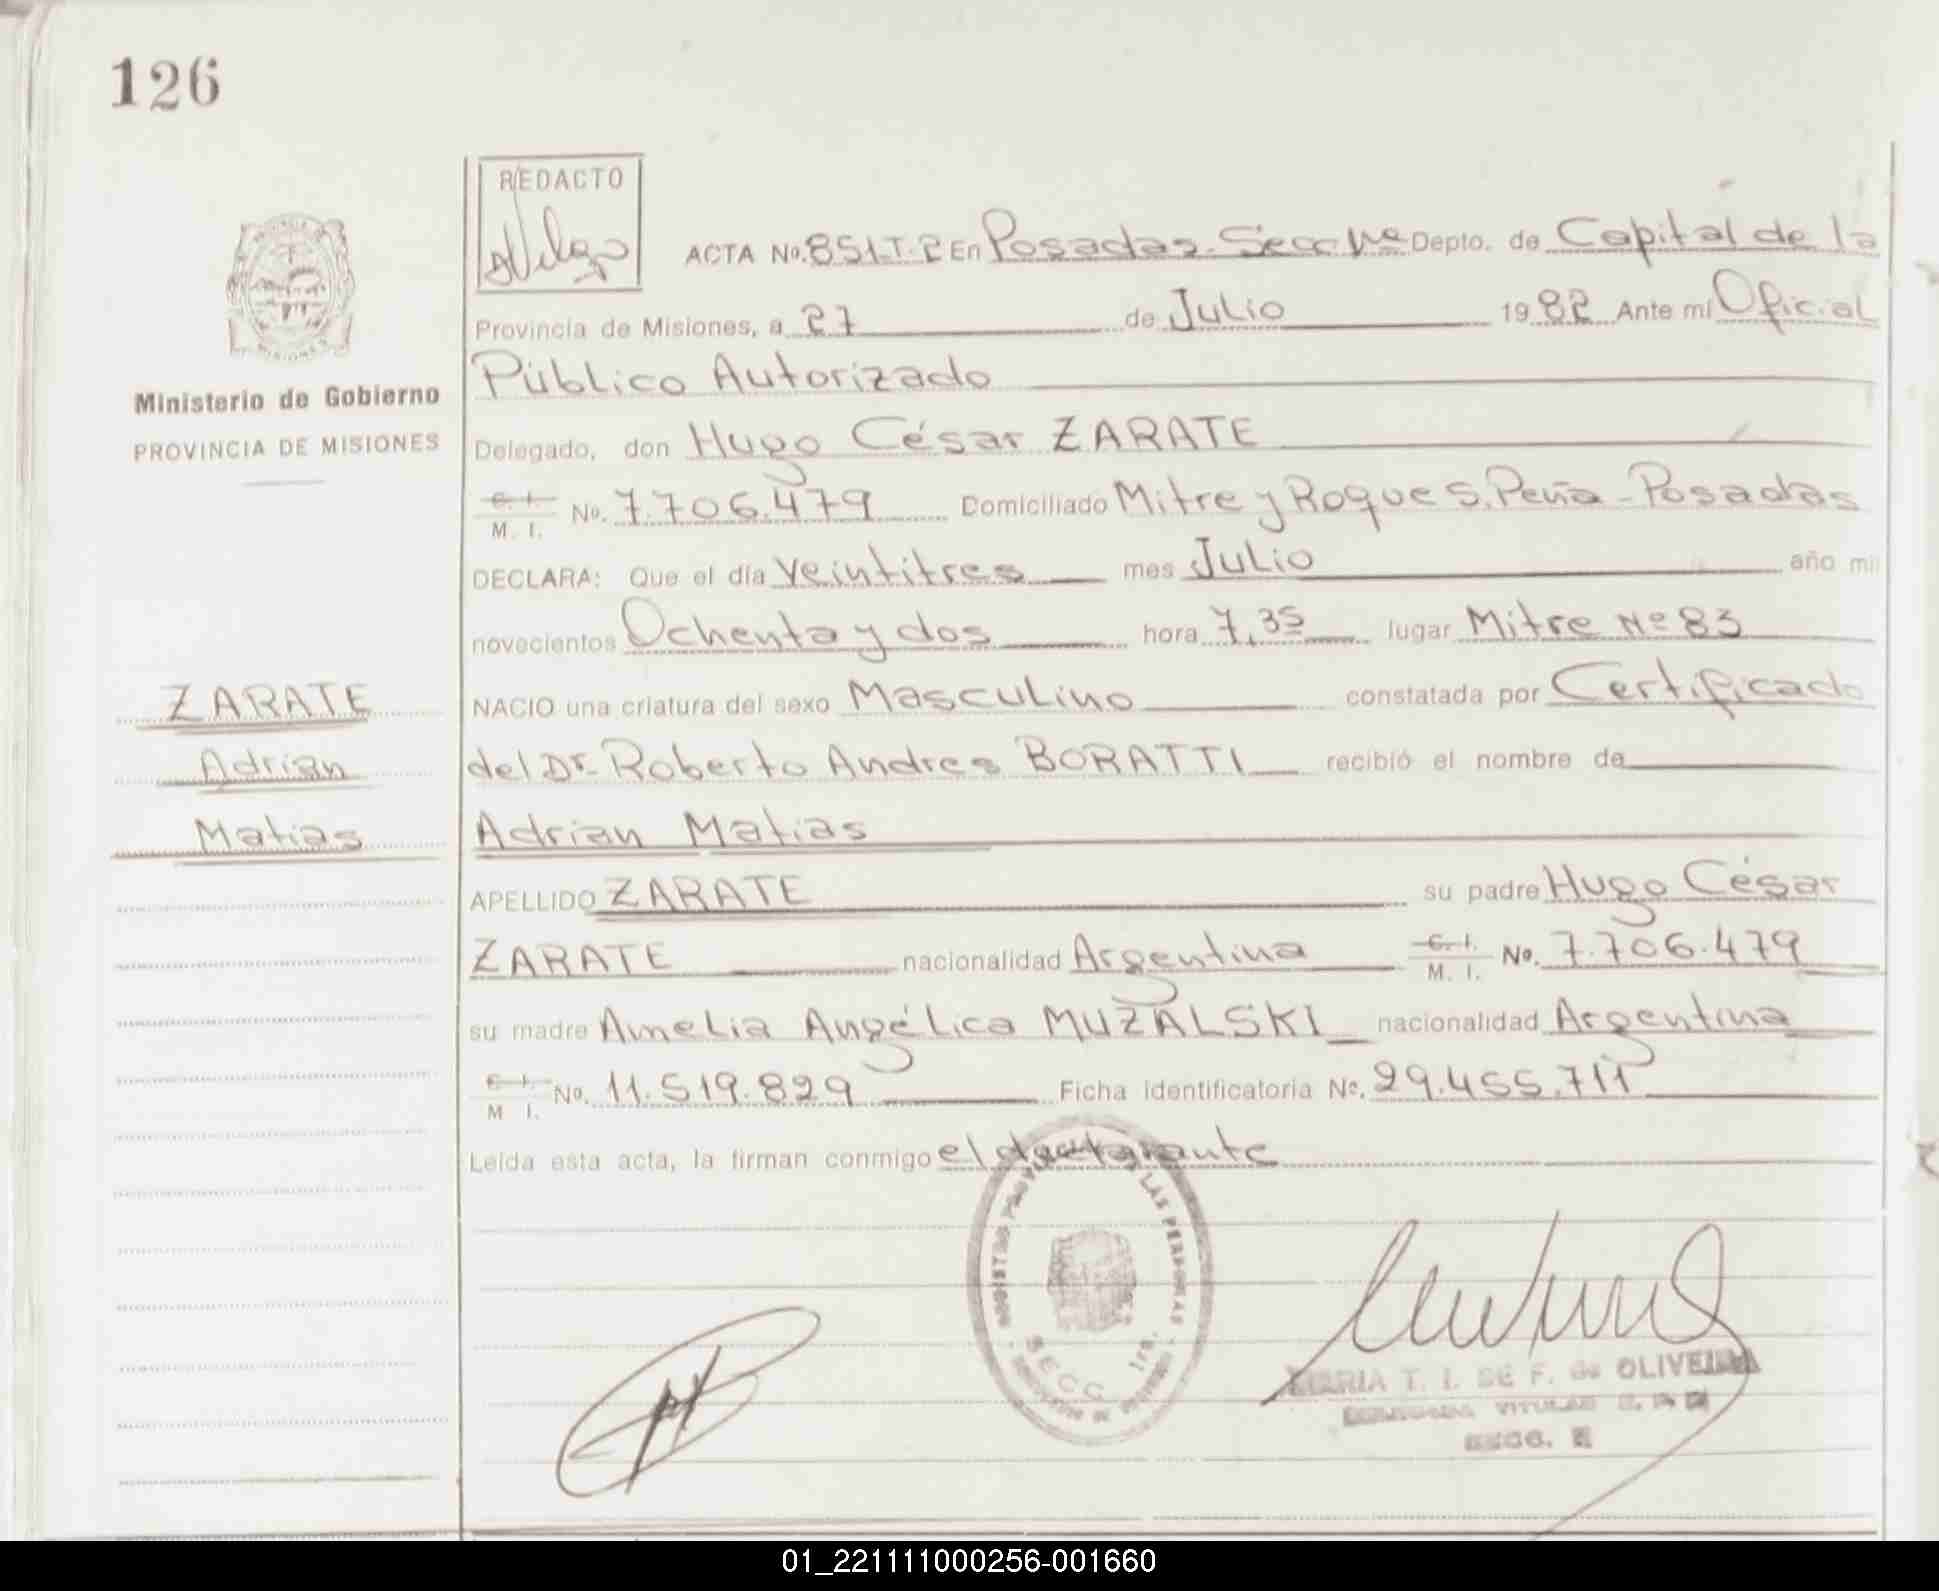 126
REDACTO
ACTA No. 851-T-2 En Posadas-Secc 1ra Depto. de Capital de la
Provincia de Misiones, a 27 de Julio 1982 Ante mi Oficial
Público Autorizado
Ministerio de Gobierno
PROVINCIA DE MISIONES
Delegado, don Hugo César ZARATE
C. I. M. I. No. 7.706.479 Domiciliado Mitre y Roque S. Peña - Posadas
DECLARA: Que el día veintitres mes Julio año mil
novecientos Ochenta y dos hora 7,35 lugar Mitre Nº 83
ZARATE
Adrian
Matias
NACIO una criatura del sexo Masculino constatada por Certificado
del Dr. Roberto Andres BORATTI recibió el nombre de
Adrian Matias
APELLIDO ZARATE su padre Hugo César
ZARATE nacionalidad Argentina C. I. M. I. No. 7.706.479
su madre Amelia Angélica MUZALSKI nacionalidad Argentina
C. I. M I. No. 11.519.829 Ficha identificatoria No. 29.455.711
Leída esta acta, la firman conmigo el
LAS PERSONAS
SECC. 1ra.
MARIA T. I. DE F. de OLIVEIRA
TITULAR
SECC.
01_221111000256-001660